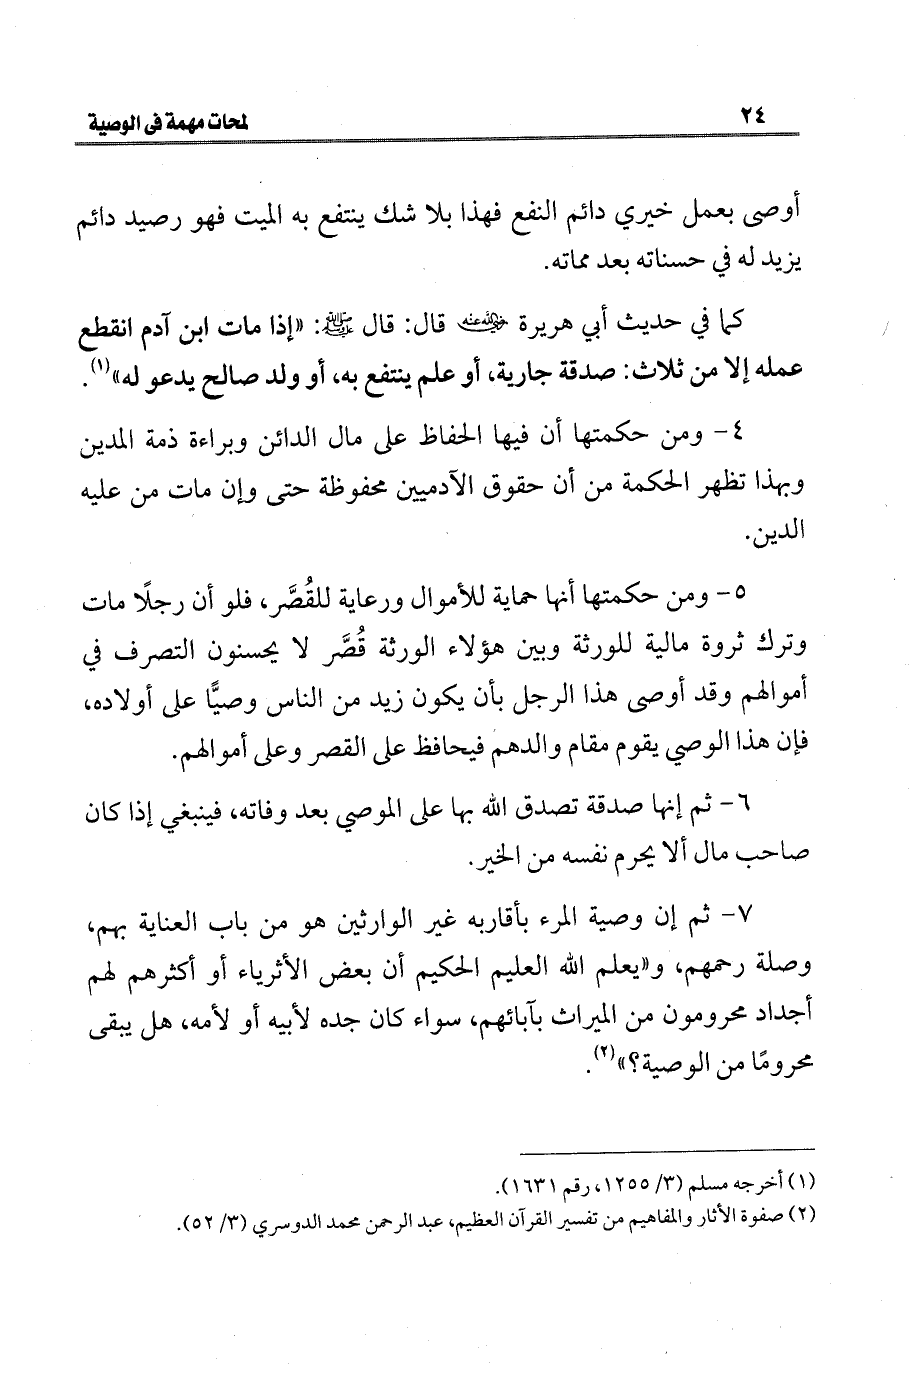 ٢٤
لمحات مهمة في الوصية
أوصى بعمل خيري دائم النفع فهذا بلا شك ينتفع به الميت فهو رصيد دائم
يزيد له في حسناته بعد مماته.
كما في حديث أبي هريرة رضي الله عنه قال: قال ﷺ: «إذا مات ابن آدم انقطع
عمله إلا من ثلاث: صدقة جارية، أو علم ينتفع به، أو ولد صالح يدعو له»(١).
٤- ومن حكمتها أن فيها الحفاظ على مال الدائن وبراءة ذمة المدين
وبهذا تظهر الحكمة من أن حقوق الآدميين محفوظة حتى وإن مات من عليه
الدين.
٥- ومن حكمتها أنها حماية للأموال ورعاية للقُصَّر، فلو أن رجلًا مات
وترك ثروة مالية للورثة وبين هؤلاء الورثة قُصَّر لا يحسنون التصرف في
أموالهم وقد أوصى هذا الرجل بأن يكون زيد من الناس وصيًّا على أولاده،
فإن هذا الوصي يقوم مقام والدهم فيحافظ على القصر وعلى أموالهم.
٦- ثم إنها صدقة تصدق الله بها على الموصي بعد وفاته، فينبغي إذا كان
صاحب مال ألا يحرم نفسه من الخير.
٧- ثم إن وصية المرء بأقاربه غير الوارثين هو من باب العناية بهم،
وصلة رحمهم، و«يعلم الله العليم الحكيم أن بعض الأثرياء أو أكثرهم لهم
أجداد محرومون من الميراث بآبائهم، سواء كان جده لأبيه أو لأمه، هل يبقى
محرومًا من الوصية؟»(٢).
(١) أخرجه مسلم (٣/ ١٢٥٥، رقم ١٦٣١).
(٢) صفوة الأثار والمفاهيم من تفسير القرآن العظيم، عبد الرحمن محمد الدوسري (٣/ ٥٢).